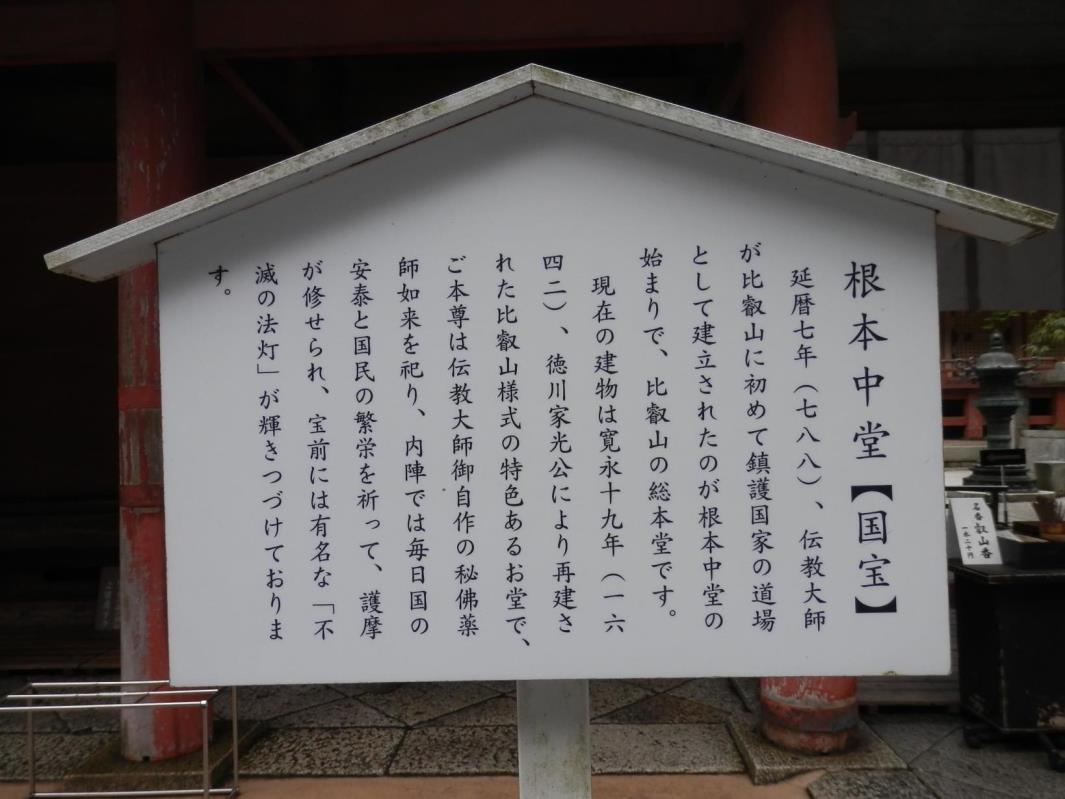 根本中堂【国宝】
延暦七年（七八八）、伝教大師
が比叡山に初めて鎮護国家の道場
として建立されたのが根本中堂の
始まりで、比叡山の総本堂です。
現在の建物は寛永十九年（一六
四二）、徳川家光公により再建さ
れた比叡山様式の特色あるお堂で、
ご本尊は伝教大師御自作の秘佛薬
師如来を祀り、内陣では毎日国の
安泰と国民の繁栄を祈って、護摩
が修せられ、宝前には有名な「不
滅の法灯」が輝きつづけておりま
す。
名香 叡山香
一本二十円